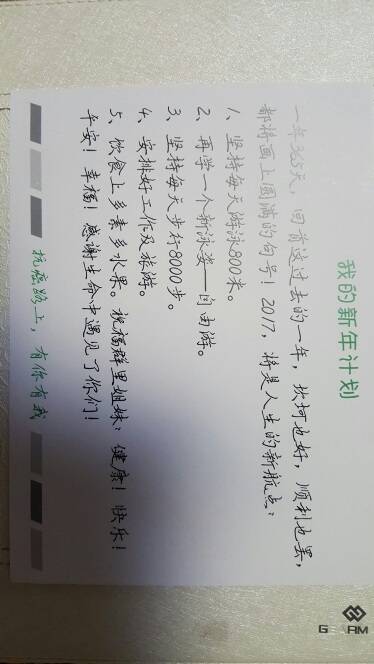 我的新年计划
一年365天，回首这过去的一年，坎坷也好，顺利也罢，
都将画上圆满的句号！2017，将是人生的新航点：
1、坚持每天游泳800米。
2、再学一个新泳姿—自由游。
3、坚持每天步行8000步。
4、安排好工作及旅游。
5、饮食上多素多水果。祝福群里姐妹：健康！快乐！
平安！幸福！感谢生命中遇见了你们！
抗癌路上，有你有我
GEARM